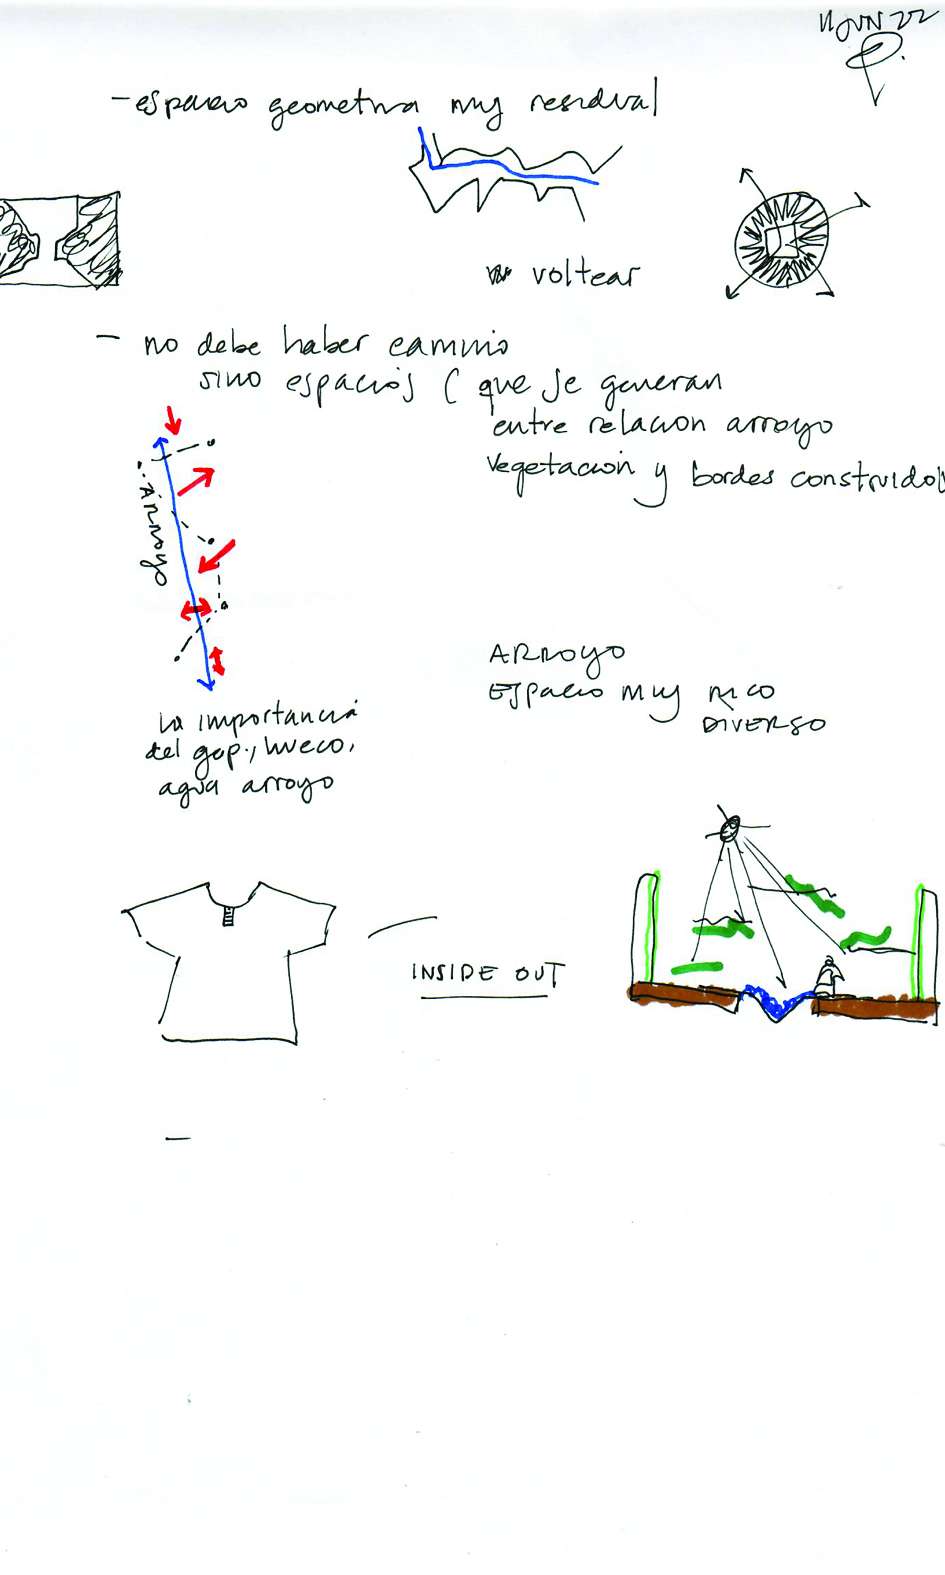 11 JUN 22
- espacio geometria muy residual
voltear
- no debe haber camino
sino espacios ( que se generan
entre relacion arroyo
vegetación y bordes construidos
ARROYO
ARROYO
ESPACIO MUY RICO
DIVERSO
la importancia
del gap, hueco,
agua arroyo
INSIDE OUT
-